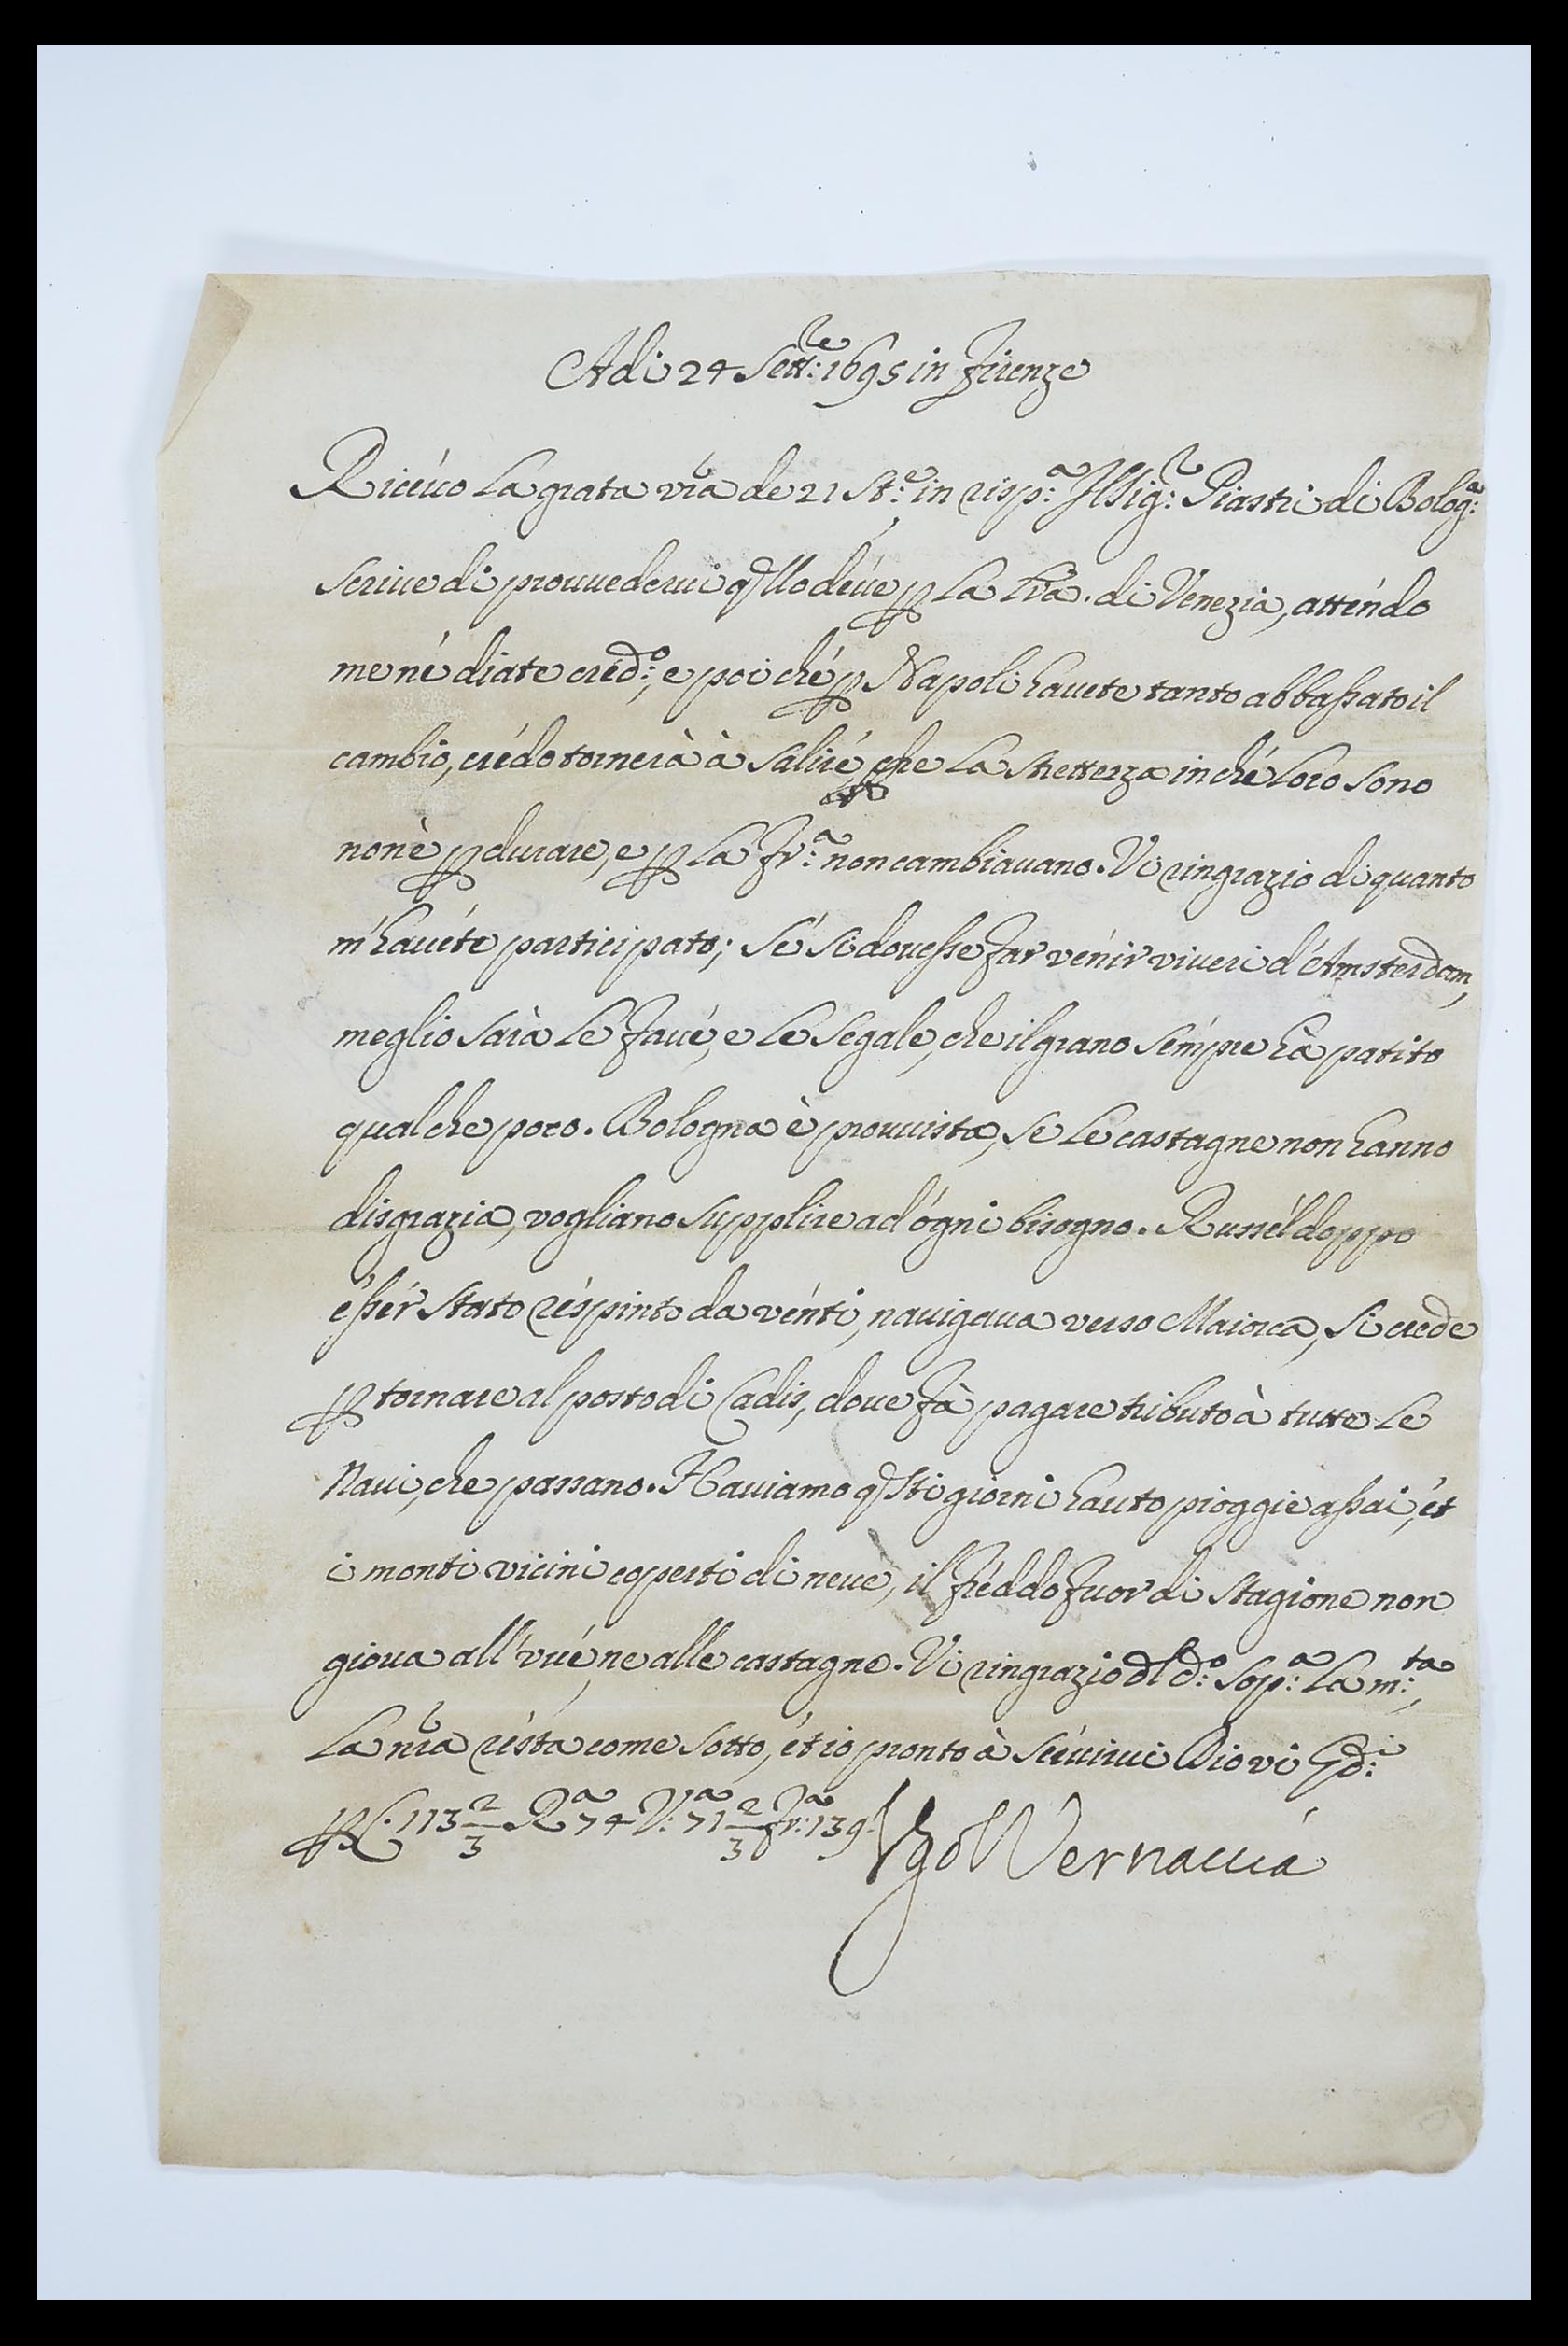 Adi 24 Sett:re 1695 in Firenze
Riceuo la grata vr̃a de 21 st:e in risp:a Il Sig:r Piastri di Bolog:a
scriue di prouuederui qllo deue p la lr̃a. di Venezia, attendo
me né diate cred:o, e poi ché p Napoli hauete tanto abbassato il
cambio, crédo tornerà à salire, che la strettezza in ché loro sono
non è p durare, e p la fr:a non cambiauano. Vi ringrazio di quanto
m'hauéte participato; sé si douesse far vénir viueri d'Amsterdam,
meglio sarà le faué, e le segale, che il grano sémpre hà patito
qualche poco. Bologna è prouuista, se le castagne non hanno
disgrazia, vogliano supplire ad ógni bisogno. Russél doppo
ésser stato réspinto da vénti, nauigaua verso Maiorca, si crede
p tornare al posto di Cadis, doue fà pagare tributo à tutte le
Naui, che passano. Hauiamo qsti giorni hauto pioggie assai, ét
i monti vicini coperti di neue, il fréddo fuor di stagione non
gioua all'vué, ne alle castagne. Vi ringrazio dl d:o sop:a la m:ta,
la nr̃a résta come sotto, ét io pronto à séruirui Dio vi Gd:i
p L. 113 2/3 R:a 74 V:a 71 2/3 fr:a 139
Vgo Vernaccia